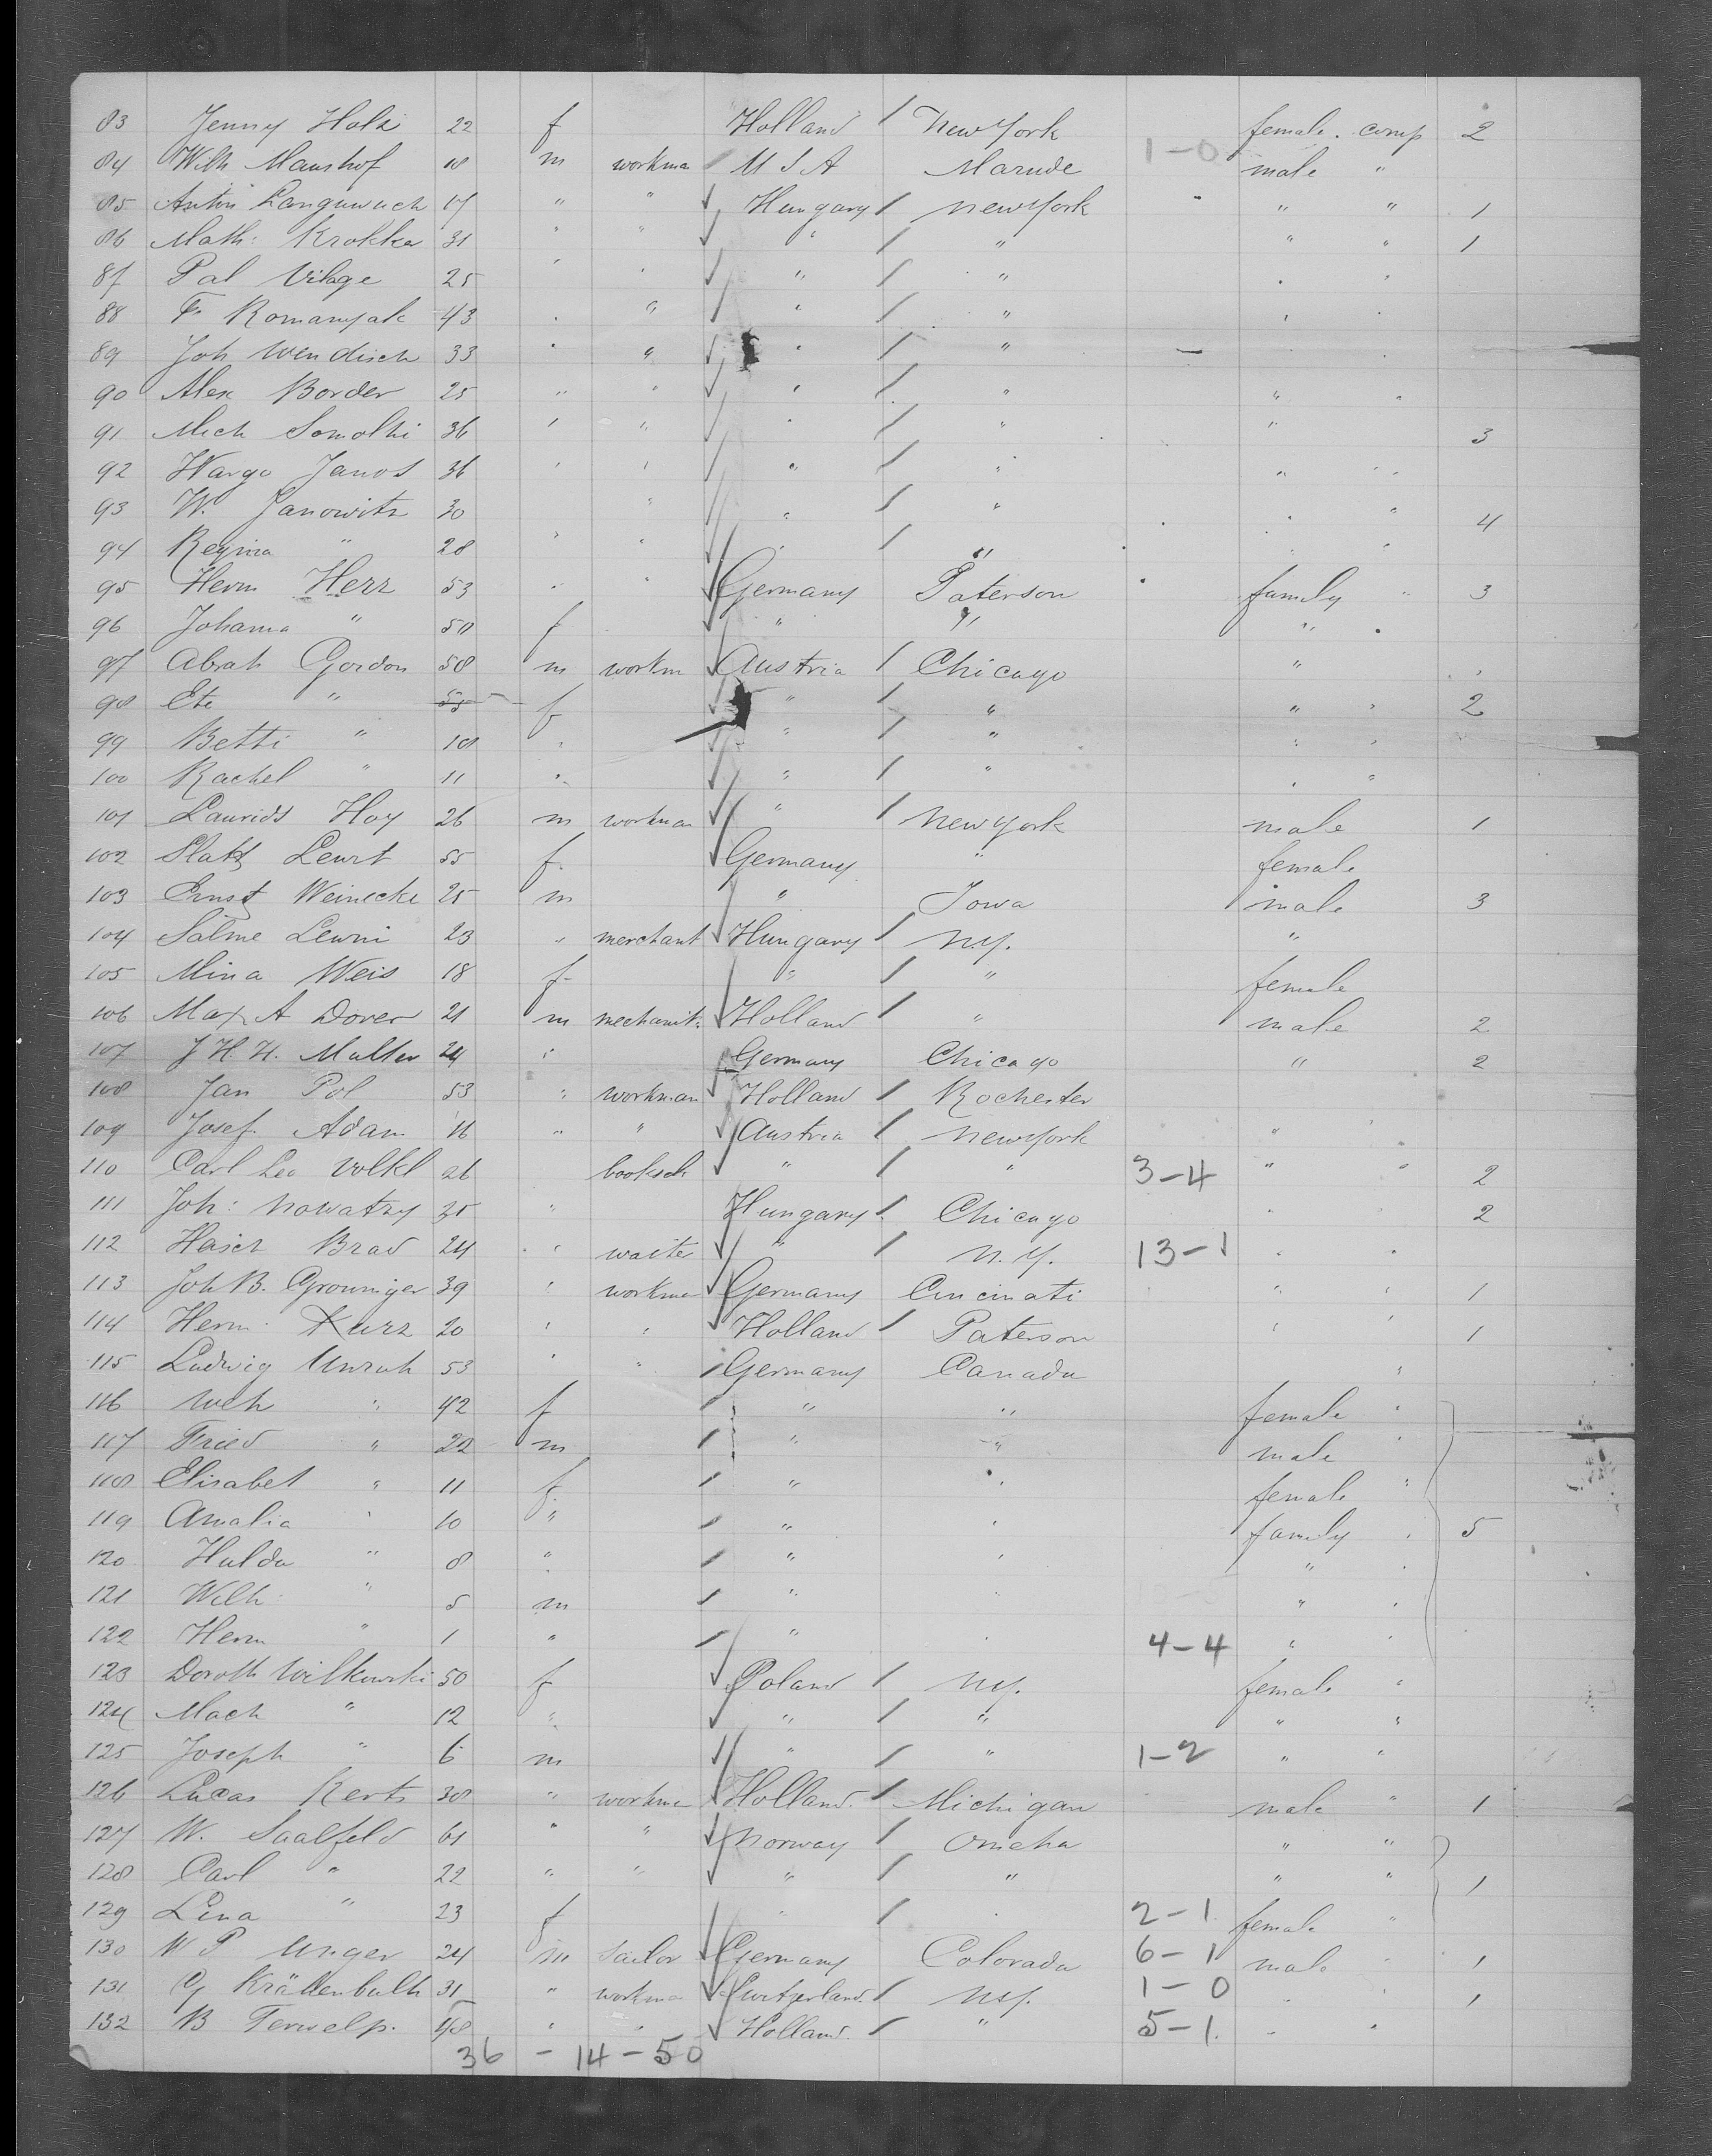 83 Jenny Holz 22 f Holland / New York female comp 2
84 Wilh Manshof 18 m workma / U S A Marude 1-0 male "
85 Anton 17 " " Hungary / New York " " 1
86 Math: Krokker 31 " " " / " " " 1
87 Pal Vilage 25 " " " / " " "
88 F. Romanyak 43 " " " / " " "
89 Joh Wendisch 33 " " " / " - " "
90 Alex Border 25 " " " / " " "
91 Mich Somolki 36 " " " / " " 3
92 Wargo Janos 36 " " " / " " "
93 W. Janowitz 30 " " / " " " 4
94 Regina " 28 " " " / " " "
95 Herm Herz 53 " " Germany Paterson family " 3
96 Johanna " 50 f " " " "
97 Abrah Gordon 58 m workm Austria / Chicago "
98 Ete " 55 f " / " " " 2
99 Betti " 18 " " / " " "
100 Rachel " 11 " " / " " "
101 Laurids Hoy 26 m workman " / New York male 1
102 Lewrt 55 f Germany " female
103 Ernst Weinecke 25 m " Iowa male 3
104 Salme Lewni 23 " merchant Hungary / N.Y. "
105 Mina Weis 18 f " / " female
106 Max A Dover 21 m mechanik: Holland / " male 2
107 J H. H. Muller 24 " Germany Chicago " 2
108 Jan Pol 53 " workman Holland / Rochester
109 Josef Adam 16 " " Austria / New York " "
110 Carl Leo Volkl 26 " / " 3-4 " " 2
111 Joh: Nowatzy 35 " Hungary / Chicago " 2
112 Hasch Brad 24 " waiter " / N.Y. 13-1 " "
113 Joh B. Grouniger 39 " workma Germany Cincinati " " 1
114 Herm Kurz 20 " " Holland / Paterson " " 1
115 Ludwig Unruh 53 " " / Germany Canada "
116 " 42 f / " " female "
117 Fried " 22 m / " " male "
118 Elisabet " 11 f / " " female "
119 Amalia " 10 " / " " family " 5
120 Hulda " 8 " / " " " "
121 Wilh " 5 m / " " " "
122 Herm " 1 " / " " 4-4 " "
123 Doroth Wilkowski 50 f Poland / N.Y. female "
124 Mach " 12 " " / " " "
125 Joseph " 6 m " / " 1-2 " "
126 Lucas Kerts 30 " workma Holland / Michigan male " 1
127 W. Saalfeld 61 " " Norway / Omeha " "
128 Carl " 22 " " " / " " " 1
129 Lena " 23 f " / " 2-1 female "
130 W P Unger 24 m Sailor Germany Colorado 6-1 male " 1
131 G Krähenbulh 31 " workma Switzerland / N.Y. 1-0 " " 1
132 B Terwelp. 48 " " Holland / " 5-1 " "
36 - 14 - 50